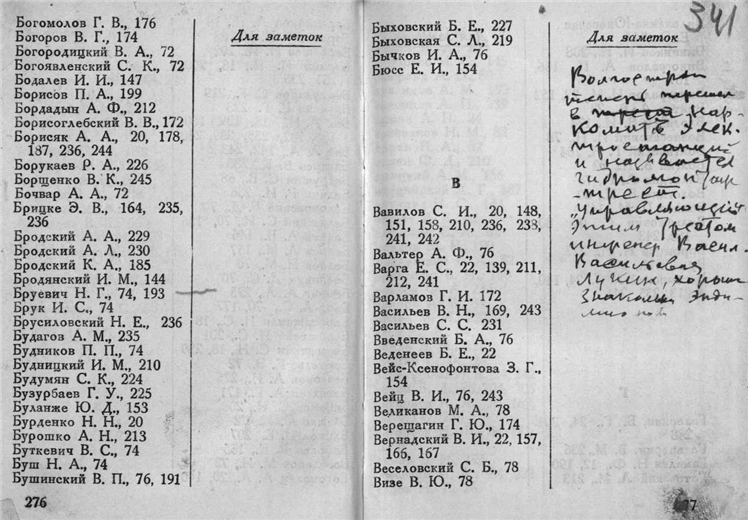 Богомолов Г. В., 176
Богоров В. Г., 174
Богородицкий В. А., 72
Богоявленский С. К., 72
Бодалев И. И., 147
Борисов П. А., 199
Бордадын А. Ф., 212
Борисоглебский В. В., 172
Борисяк А. А., 20, 178,
187, 236, 244
Борукаев Р. А., 226
Борщенко В. К., 245
Бочвар А. А., 72
Брицке Э. В., 164, 235,
236
Бродский А. А., 229
Бродский А. Л., 230
Бродский К. А., 185
Бродянский И. М., 144
Бруевич Н. Г., 74, 193
Брук И. С., 74
Брусиловский Н. Е., 236
Будагов А. М., 235
Будников П. П., 74
Будницкий И. М., 210
Будумян С. К., 224
Бузурбаев Г. У., 225
Буланже Ю. Д., 153
Бурденко Н. Н., 20
Бурошко А. Н., 213
Буткевич В. С., 74
Буш Н. А., 74
Бушинский В. П., 76, 191
276
Для заметок
Быховский Б. Е., 227
Быховская С. Л., 219
Бычков И. А., 76
Бюсс Е. И., 154
В
Вавилов С. И., 20, 148,
151, 158, 210, 236, 238,
241, 242
Вальтер А. Ф., 76
Варга Е. С., 22, 139, 211,
212, 241
Варламов Г. И. 172
Васильев В. Н., 169, 243
Васильев С. С. 231
Введенский Б. А., 76
Веденеев Б. Е., 22
Вейс-Ксенофонтова З. Г.,
154
Вейц В. И., 76, 243
Великанов М. А., 78
Верещагин Г. Ю., 174
Вернадский В. И., 22, 157,
166, 167
Веселовский С. Б., 78
Визе В. Ю., 78
341
Для заметок
теперь
в Нар-
комат Элек-
тростанций
и называется
трест.
Управляющий
этим трестом
инженер Васил.
Васильевич
хорош
77